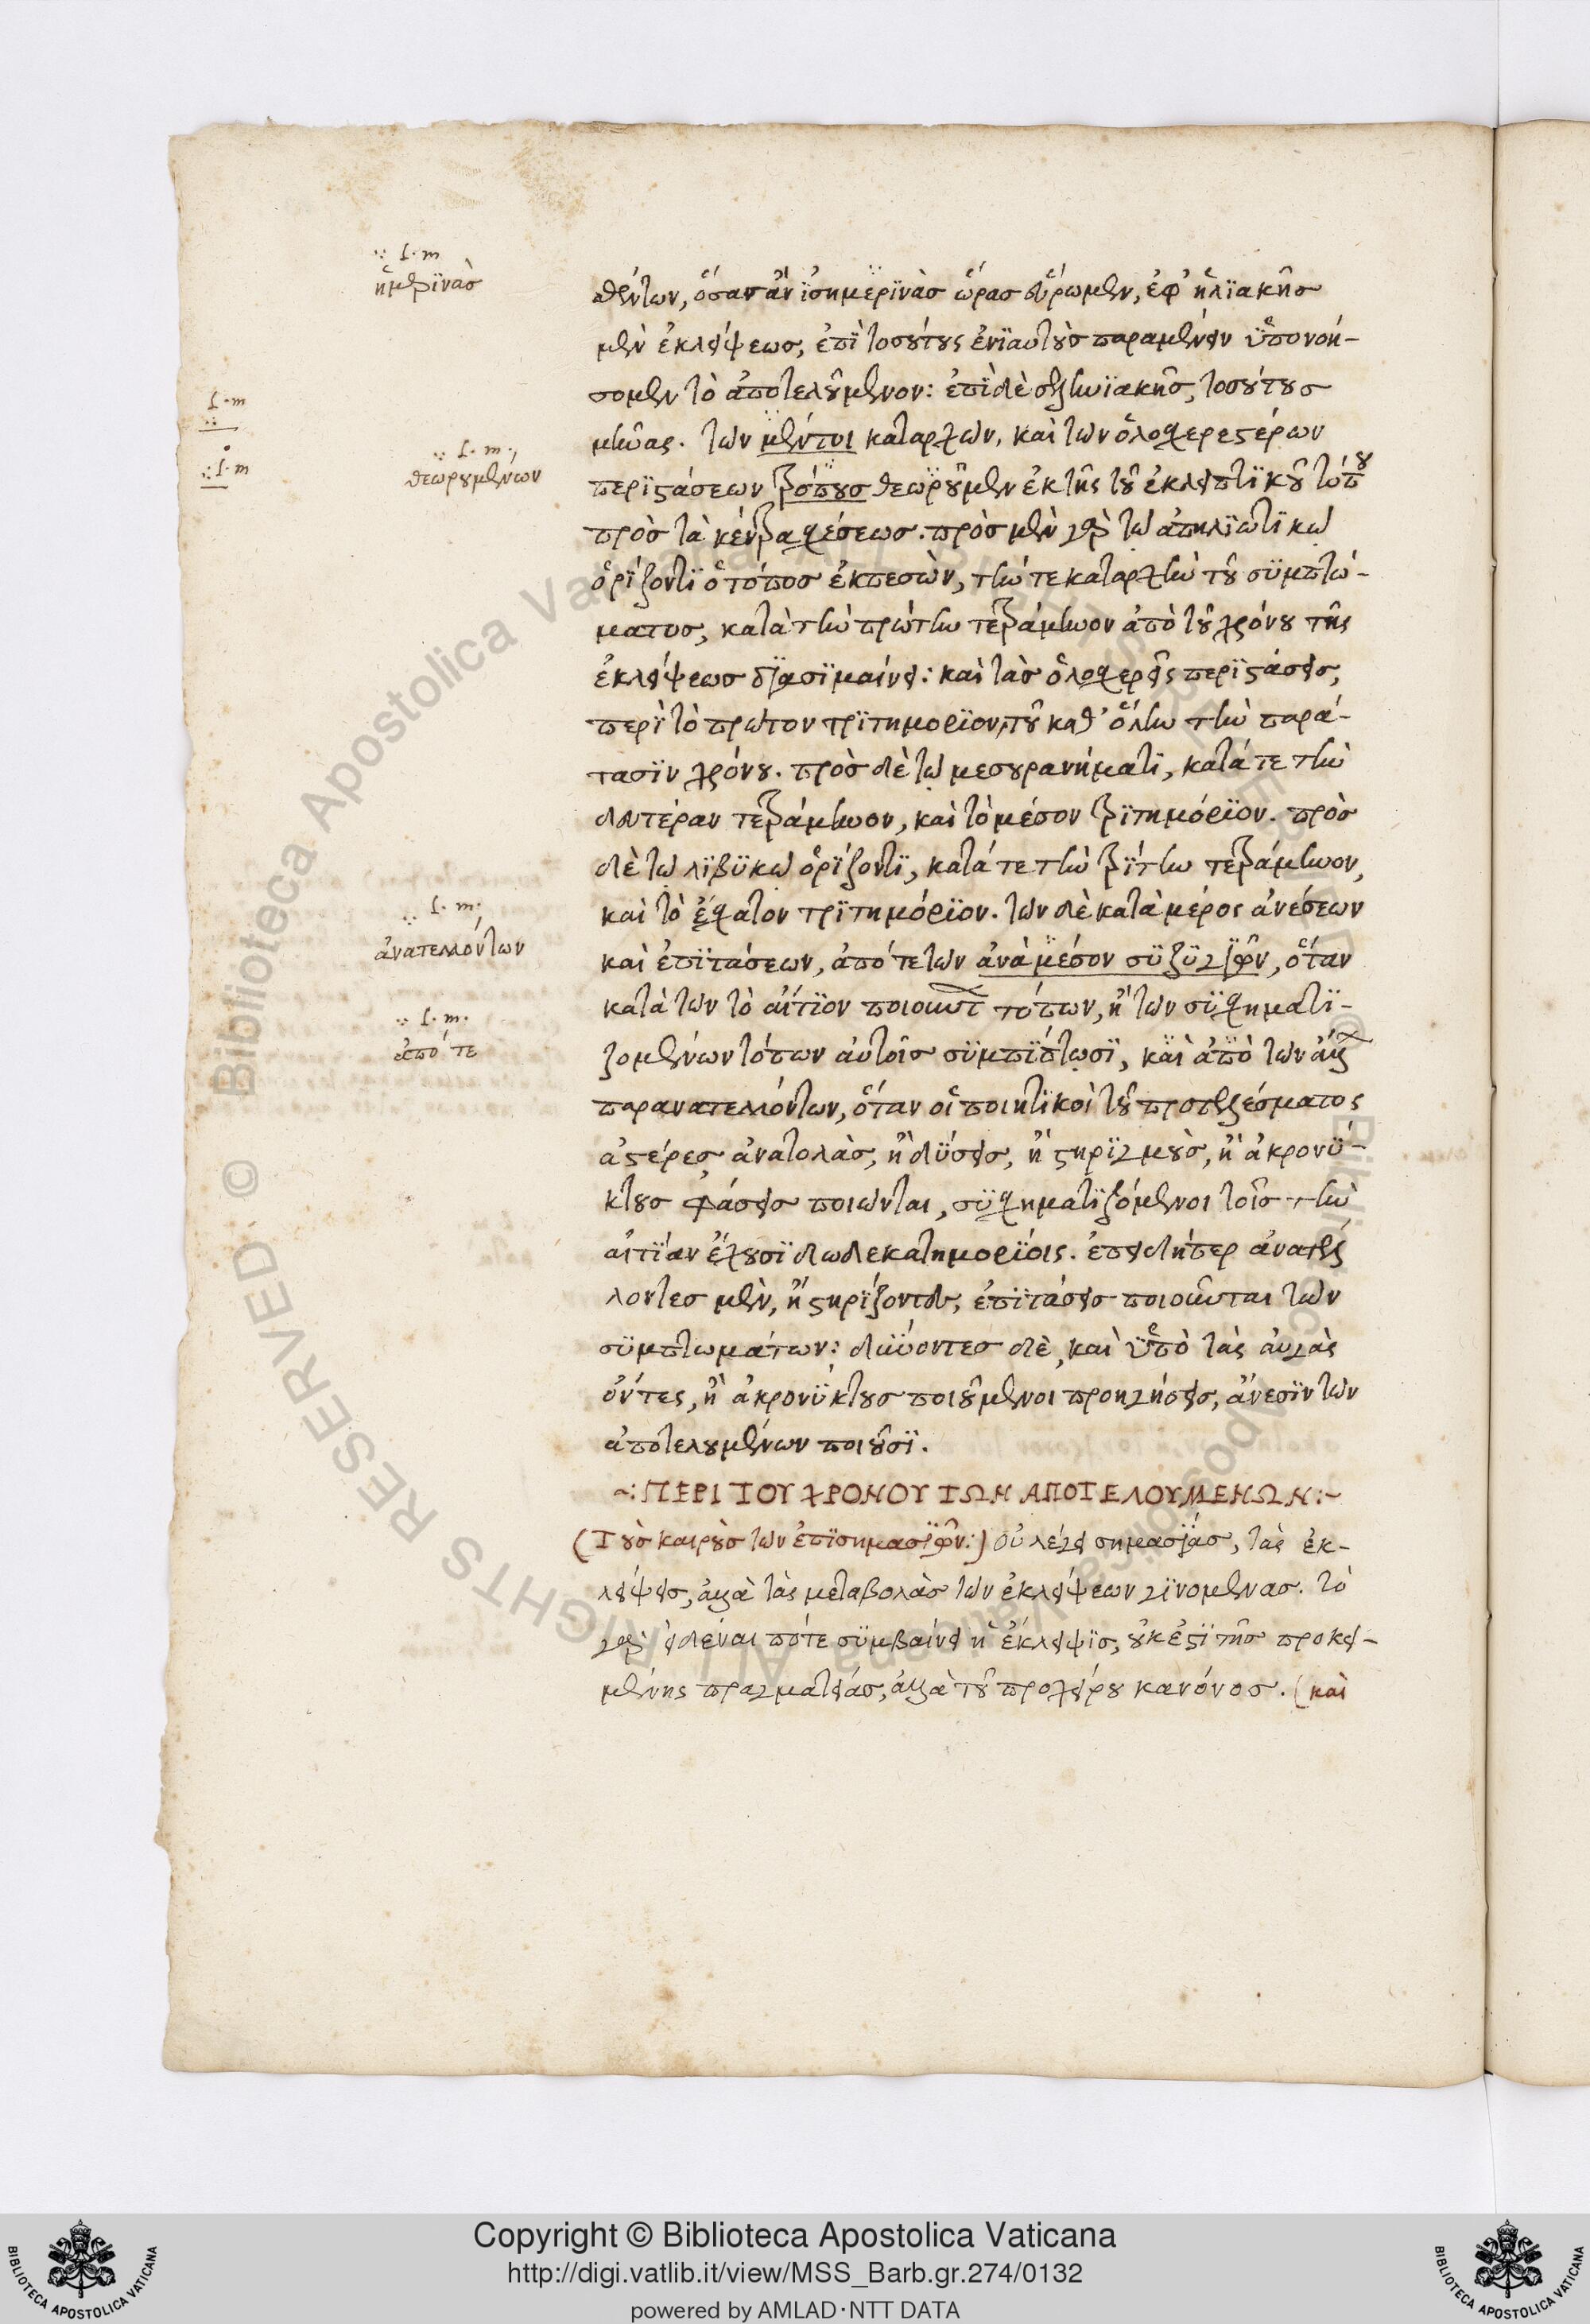 ∵ l·m
ἡμερϊνὰσ
θέντων, ὅσασ ἂν ϊσημερϊνὰσ ὥρασ εὕρωμεν, ἐφ' ἡλϊακῆσ
μὲν ἐκλείψεωσ, ἐπὶ τοσούτους ἐνϊαυτοὺσ παραμένειν ὑπονοή-
l·m
σομεν τὸ ἀποτελούμενον: ἐπὶ δὲ σεληνϊακῆσ, τοσούτουσ
∵
μῆνας. τῶν μέντοι καταρχῶν, καὶ τῶν ὁλοσχερεστέρων
∵ l·m
∵ l·m·
θεωρουμένων
περϊστάσεων τρόπουσ θεωροῦμεν ἐκ τῆς τοῦ ἐκλειπτϊκοῦ τόπου
πρὸσ τὰ κέντρα σχέσεωσ. πρὸσ μὲν γὰρ τῶ ἀπηλϊωτϊκῶ
ὁρϊζοντϊ ὁ τόποσ ἐκπεσὼν, τήν τε καταρχὴν τοῦ σϋμπτώ-
ματοσ, κατὰ τὴν πρώτην τετράμηνον ἀπὸ τοῦ χρόνου τῆς
ἐκλείψεωσ δϊασϊμαίνει: καὶ τὰσ ὁλοσχερεῖς περϊστάσεις,
περὶ τὸ πρῶτον τρϊτημορϊον, τοῦ καθ' ὅλην τὴν παρά-
τασϊν χρόνου. πρὸσ δὲ τῶ μεσουρανήματϊ, κατά τε τὴν
δευτέραν τετράμηνον, καὶ τὸ μέσον τρϊτημόρϊον. πρὸσ
δὲ τῶ λϊβϋκῶ ὁρϊζοντϊ, κατά τε τὴν τρϊτην τετράμηνον,
∵ l·m·
καὶ τὸ ἔσχατον τρϊτημόρϊον. τῶν δὲ κατὰ μέρος ἀνέσεων
ἀνατελλόντων
καὶ ἐπϊτάσεων, ἀπό τε τῶν ἀνὰ μέσον σϋζϋγϊῶν, ὅταν
∵ l·m·
κατὰ τῶν τὸ αἴτϊον ποιούντων τόπων, ἢ τῶν σϋσχηματϊ-
ἀπό τε
ζομένων τόπων αὐτοῖσ σϋμπϊπτωσϊ, καὶ ἀπὸ τῶν ἄλλων
παρανατελλόντων, ὅταν οἱ ποιητϊκοὶ τοῦ προτελέσματος
ἀστέρεσ ἀνατολὰσ, ἢ δϋσεισ, ἢ στηρϊγμοὺσ, ἢ ἀκρονϋ-
κτουσ φάσεισ ποιῶνται, σϋσχηματϊζόμενοι τοῖσ τὴν
αἰτϊαν ἔχουσϊ δωδεκατημορϊοις. ἐπειδήπερ ἀνατέλ
λοντεσ μὲν, ἢ στηρϊζοντεσ, ἐπϊτάσεισ ποιοῦνται τῶν
σϋμπτωμάτων: δϋνοντεσ δὲ, καὶ ὑπὸ τὰς αὐγὰς
ὄντες, ἢ ἀκρονϋκτουσ ποιούμενοι προηγήσεισ, ἄνεσϊν τῶν
ἀποτελουμένων ποιοῦσϊ.
~: ΠΕΡΙ ΤΟΥ ΧΡΟΝΟΥ ΤΩΝ ΑΠΟΤΕΛΟΥΜΕΝΩΝ:~
(Τοὺσ καιροὺσ τῶν ἐπϊσημασϊῶν:) οὐ λέγει σημασϊάσ, τὰς ἐκ-
λείψεισ, ἀλλὰ τὰς μεταβολὰσ τῶν ἐκλείψεων γϊνομένασ. τὸ
γὰρ εἰδέναι πότε σϋμβαίνει ἡ ἔκλειψϊσ, οὐκ ἔστϊ τῆσ προκει-
μένης πραγματείάσ, ἀλλὰ τοῦ προχείρου κανόνοσ. (καὶ
Copyright © Biblioteca Apostolica Vaticana
http://digi.vatlib.it/view/MSS_Barb.gr.274/0132
powered by AMLAD·NTT DATA